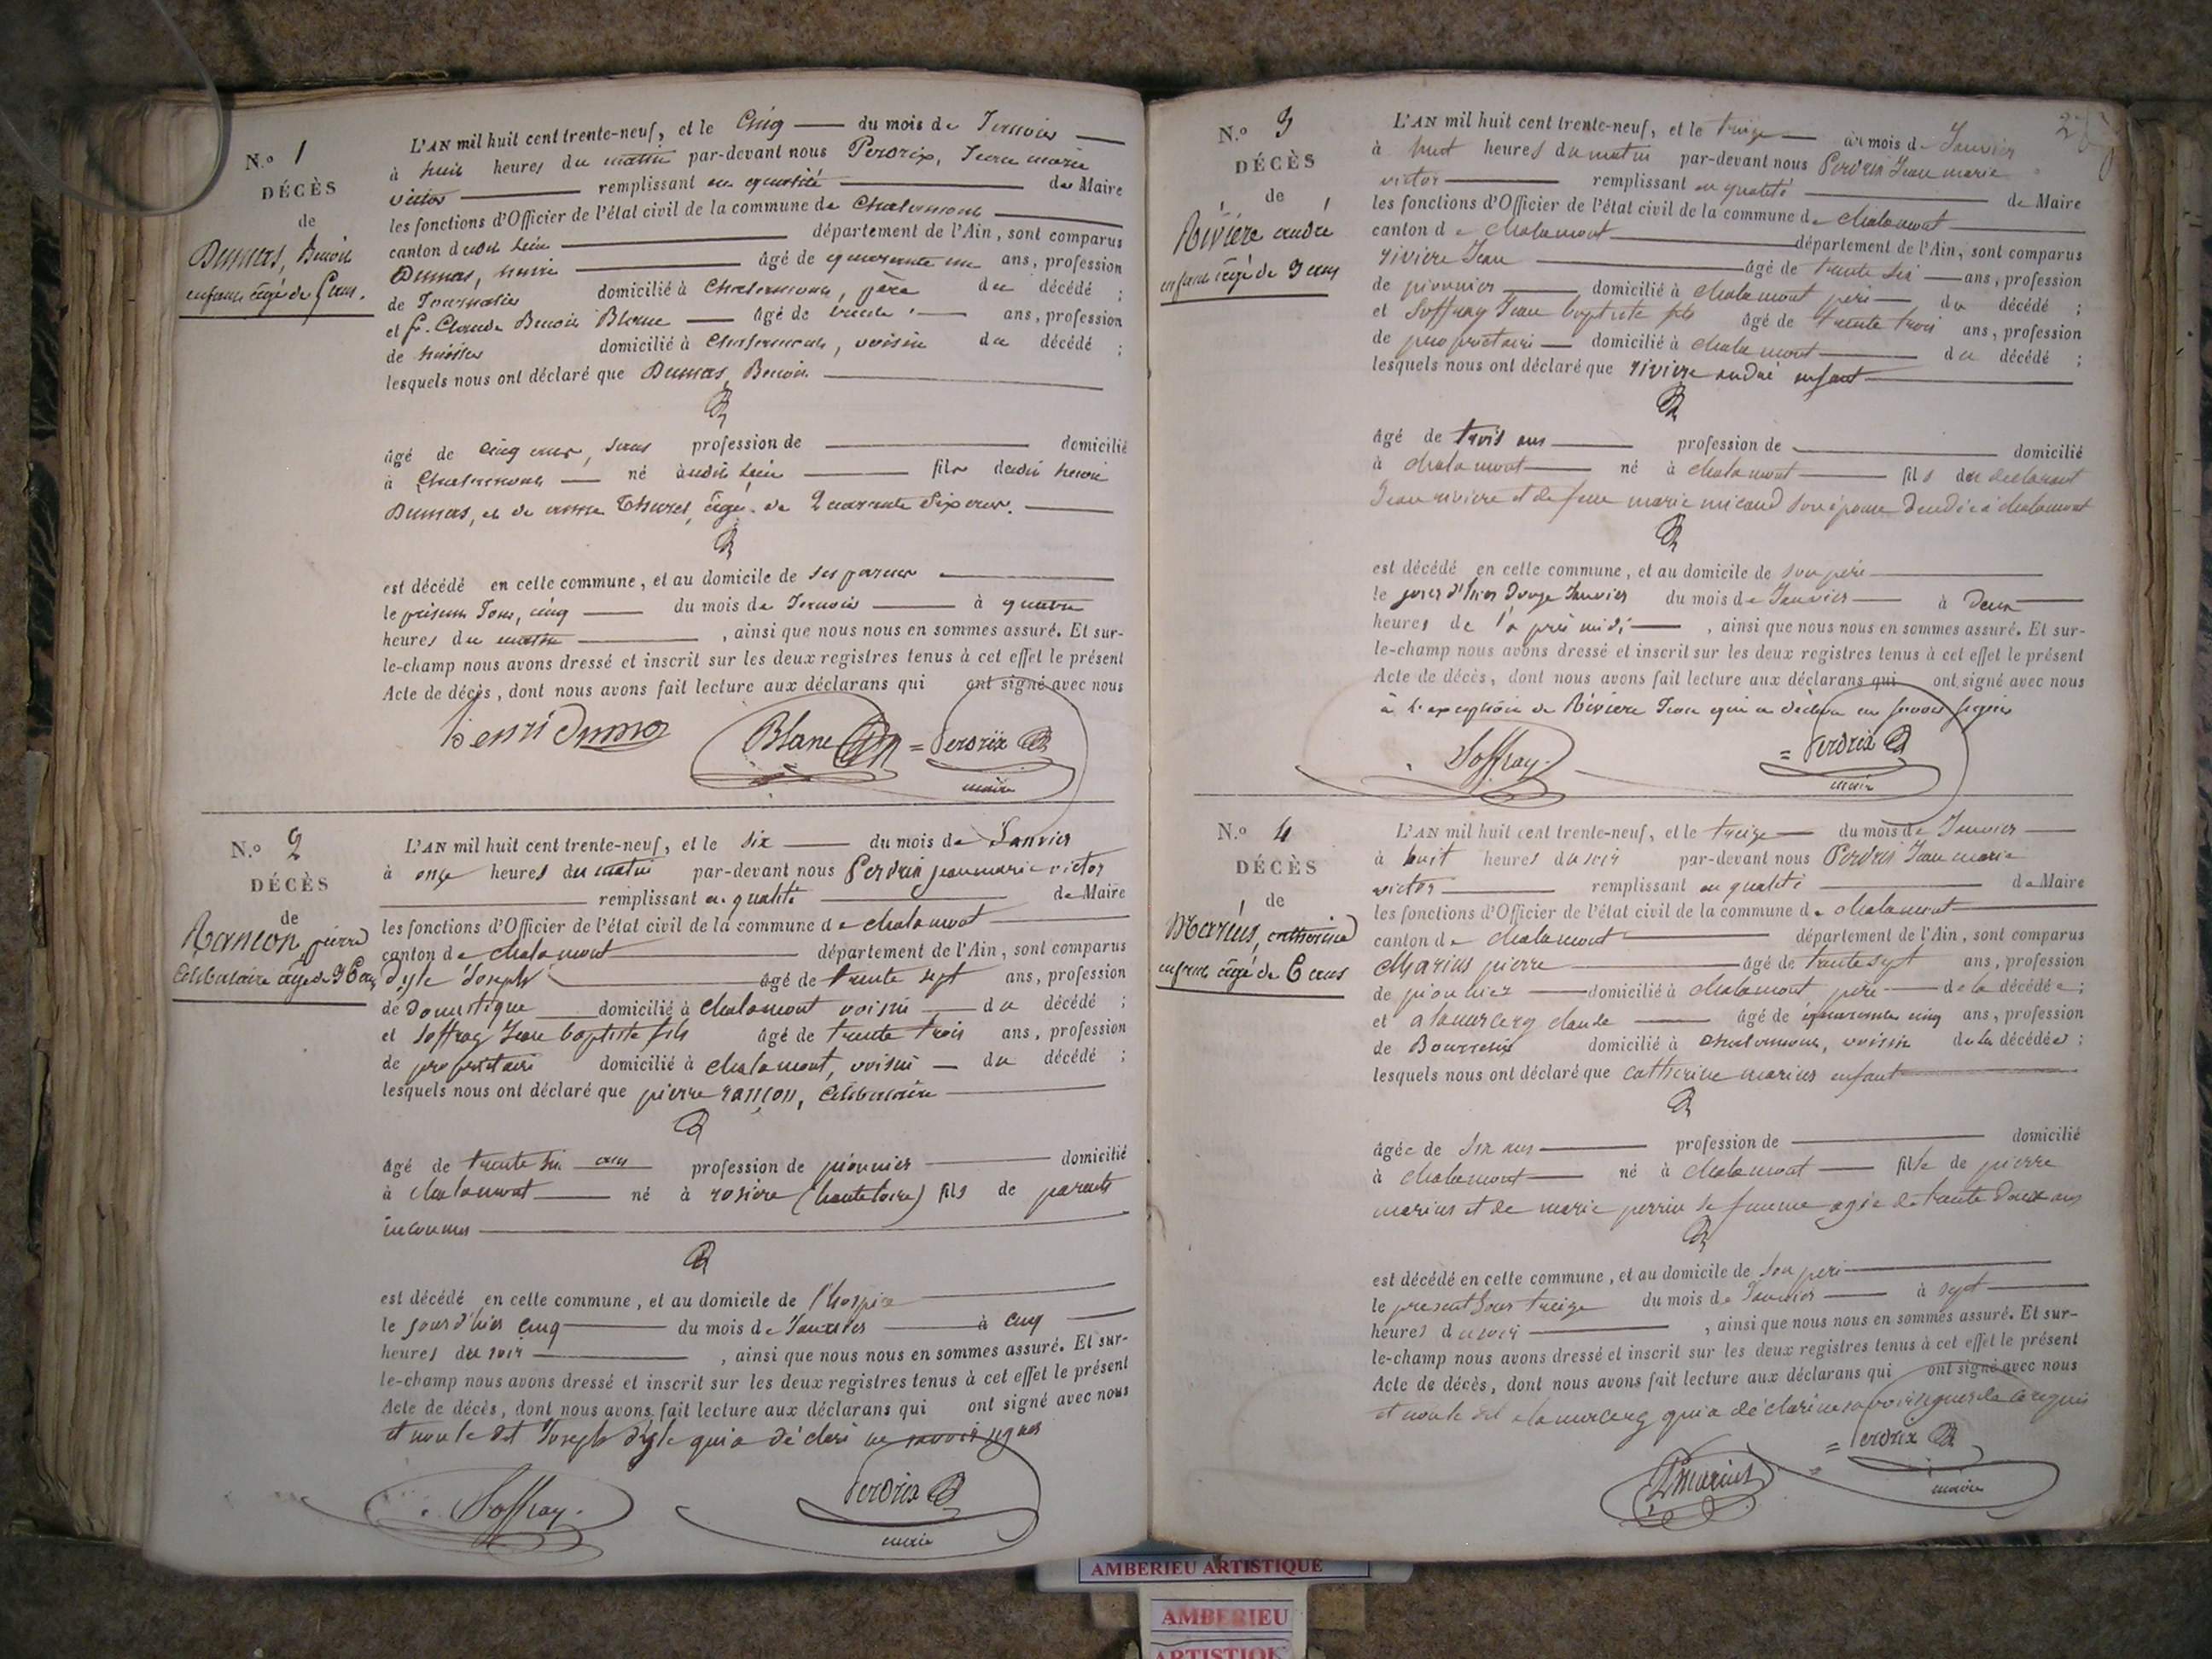 N.o 1
DÉCÈS
de
Dumas, Benoit
enfant âgé de 5 ans.
L'AN mil huit cent trente-neuf, et le Cinq du mois de Janvier
à huit heures du matin par-devant nous Perdrix, Jean marie
victor remplissant en qualité de Maire
les fonctions d'Officier de l'état civil de la commune de Chalamont
canton dudit lieu département de l'Ain, sont comparus
Dumas, henri âgé de quarante un ans, profession
de Journalier domicilié à Chalamont, père du décédé ;
et Claude Benoit Blanc âgé de trente ans, profession
de huissier domicilié à Chalamont, voisin du décédé ;
lesquels nous ont déclaré que Dumas, Benoit
âgé de cinq ans, sans profession de domicilié
à Chalamont né audit lieu fils dudit henri
Dumas, et de anne âgée de Quarante Six ans.
est décédé en cette commune, et au domicile de ses parens
le présent Jour, cinq du mois de Janvier à quatre
heures du matin , ainsi que nous nous en sommes assuré. Et sur-
le-champ nous avons dressé et inscrit sur les deux registres tenus à cet effet le présent
Acte de décès, dont nous avons fait lecture aux déclarans qui ont signé avec nous
henri dumas Blanc = Perdrix
maire
N.o 2
DÉCÈS
de
Rancon pierre
célibataire âgé de 36 ans
L'AN mil huit cent trente-neuf, et le six du mois de Janvier
à onze heures du matin par-devant nous Perdrix jean marie victor
remplissant en qualité de Maire
les fonctions d'Officier de l'état civil de la commune de chalamont
canton de chalamont département de l'Ain, sont comparus
Joseph âgé de trente sept ans, profession
de Domestique domicilié à Chalamont voisin du décédé ;
et Soffray Jean baptiste fils âgé de trente trois ans, profession
de propriétaire domicilié à Chalamont, voisin du décédé ;
lesquels nous ont déclaré que pierre rançon, célibataire
âgé de trente six ans profession de pionnier domicilié
à chalamont né à rosiere (haute loire) fils de parents
inconnus
est décédé en cette commune, et au domicile de l'hospice
le jour d'hier cinq du mois de Janvier à cinq
heures du soir , ainsi que nous nous en sommes assuré. Et sur-
le-champ nous avons dressé et inscrit sur les deux registres tenus à cet effet le présent
Acte de décès, dont nous avons fait lecture aux déclarans qui ont signé avec nous
et non le dit Joseph qui a déclaré ne savoir signer
Soffray. Perdrix
maire
N.o 3
DÉCÈS
de
Rivière andré
enfant âgé de 3 ans
L'AN mil huit cent trente-neuf, et le treize du mois de Janvier
à huit heures du matin par-devant nous Perdrix Jean marie
victor remplissant en qualité de Maire
les fonctions d'Officier de l'état civil de la commune de chalamont
canton de Chalamont département de l'Ain, sont comparus
riviere Jean âgé de trente six ans, profession
de pionnier domicilié à chalamont père du décédé ;
et Soffray Jean baptiste fils âgé de trente trois ans, profession
de propriétaire domicilié à chalamont du décédé ;
lesquels nous ont déclaré que riviere andré enfant
âgé de trois ans profession de domicilié
à chalamont né à chalamont fils du declarant
Jean riviere et de feue marie micaud son épouse décédée à chalamont
est décédé en cette commune, et au domicile de son père
le jour d'hier douze Janvier du mois de Janvier à Deux
heures de l'après midi , ainsi que nous nous en sommes assuré. Et sur-
le-champ nous avons dressé et inscrit sur les deux registres tenus à cet effet le présent
Acte de décès, dont nous avons fait lecture aux déclarans qui ont signé avec nous
à l'exception de Rivière Jean qui a déclaré ne savoir signer
Soffray. = Perdrix
maire
N.o 4
DÉCÈS
de
Marius, catherine
enfant âgé de 6 ans
L'AN mil huit cent trente-neuf, et le treize du mois de Janvier
à huit heures du soir par-devant nous Perdrix Jean marie
victor remplissant en qualité de Maire
les fonctions d'Officier de l'état civil de la commune de chalamont
canton de chalamont département de l'Ain, sont comparus
Marius pierre âgé de trente sept ans, profession
de pionnier domicilié à chalamont, père de la décédée ;
et claude âgé de quarante cinq ans, profession
de domicilié à Chalamont, voisin de la décédée ;
lesquels nous ont déclaré que catherine marius enfant
âgée de six ans profession de domicilié
à chalamont né à chalamont fille de pierre
marius et de marie perrin sa femme agée de trente deux ans
est décédé en cette commune, et au domicile de son père
le present Jour treize du mois de Janvier à sept
heures du soir , ainsi que nous nous en sommes assuré. Et sur-
le-champ nous avons dressé et inscrit sur les deux registres tenus à cet effet le présent
Acte de décès, dont nous avons fait lecture aux déclarans qui ont signé avec nous
et non le dit qui a déclaré ne savoir signer de ce requis
Pmarius = Perdrix
maire
AMBERIEU ARTISTIQUE
AMBERIEU
ARTISTIQUE